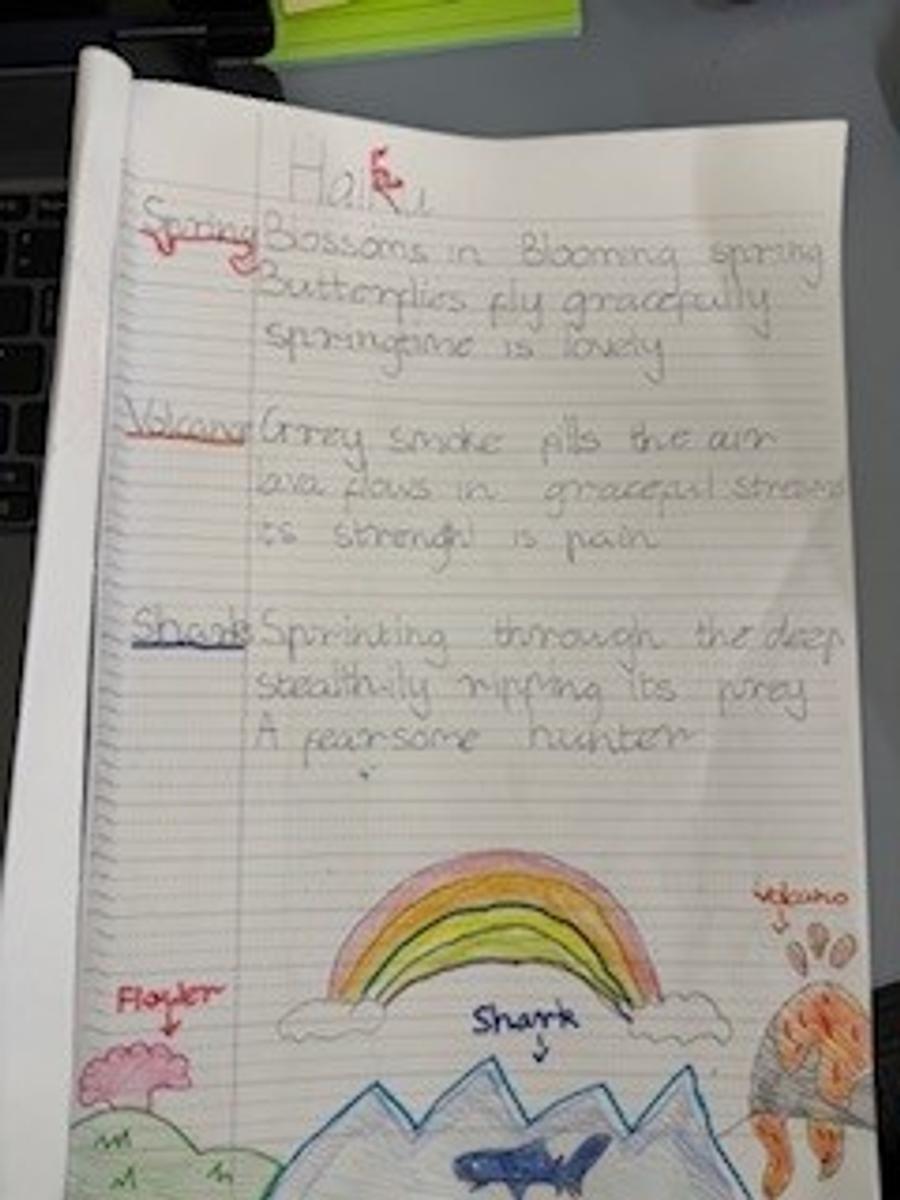 Haiku
Spring Bossoms in Blooming spring
Butterflies fly gracefully
springtime is lovely
Volcano Grey smoke fills the air
lava flows in graceful streams
its strenght is pain
Shark Sprinting through the deep
stealthily ripping its prey
A fearsome hunter
volcano
Flower
Shark